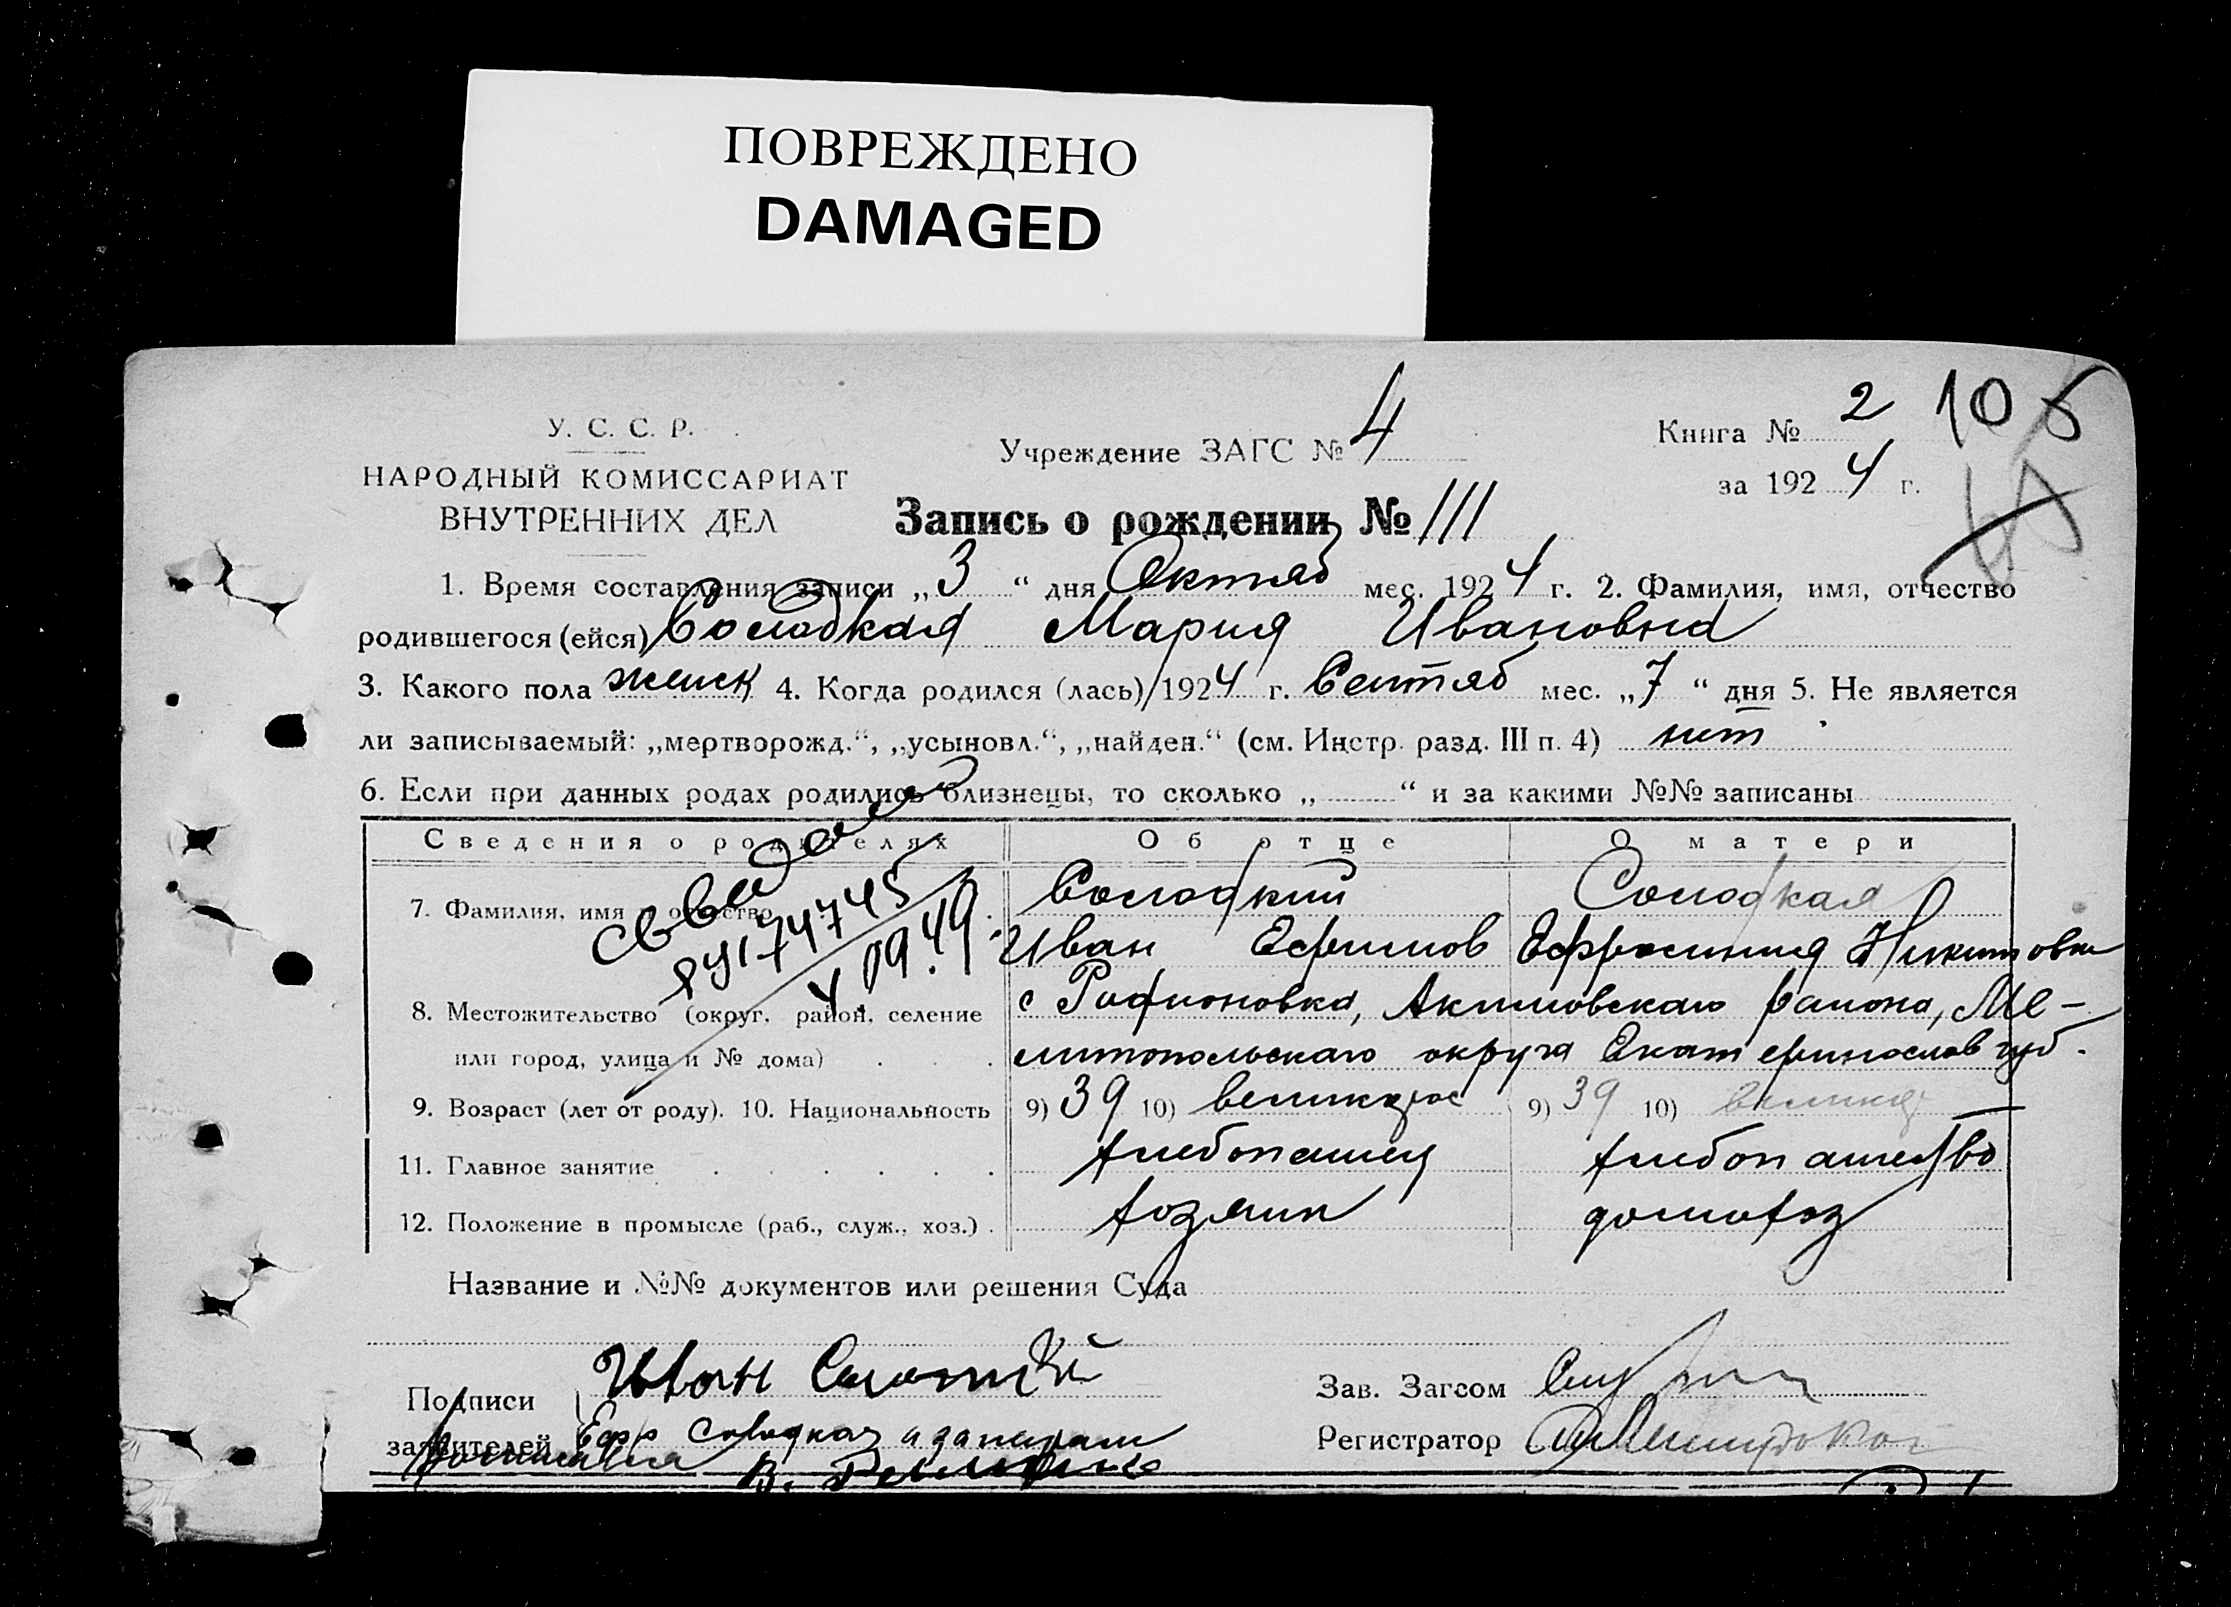 ПОВРЕЖДЕНО
DAMAGED
У. С. С. Р.
НАРОДНЫЙ КОМИССАРИАТ
ВНУТРЕННИХ ДЕЛ
Учреждение ЗАГС № 4
Книга № 2 106
за 1924 г.
Запись о рождении № 111
1. Время составления записи „3“ дня Октяб мес. 1924 г. 2. Фамилия, имя, отчество
родившегося (ейся) Солодкая Мария Ивановна
3. Какого пола женск 4. Когда родился (лась) 1924 г. Сентяб мес. „7“ дня 5. Не является
ли записываемый: „мертворожд.“, „усыновл.“, „найден.“ (см. Инстр. разд. III п. 4) нет
6. Если при данных родах родились близнецы, то сколько „ “ и за какими №№ записаны
Сведения о родителях Об отце О матери
7. Фамилия, имя и отчество Солодкий Солодкая
Иван Ефимов Ефросиния Никитовна
8. Местожительство (округ, район, селение с Родионовка, Акимовскаго района, Ме-
или город, улица и № дома) литопольскаго округа Екатеринослав губ.
9. Возраст (лет от роду). 10. Национальность 9) 39 10) великорос 9) 39 10) великор
11. Главное занятие хлебопашец хлебопашество
12. Положение в промысле (раб., служ., хоз.) хозяин домохоз
4174745
4 09.49.
Название и №№ документов или решения Суда
Подписи Иван Солоткий
заявителей Ефр Солодкая
Зав. Загсом
Регистратор